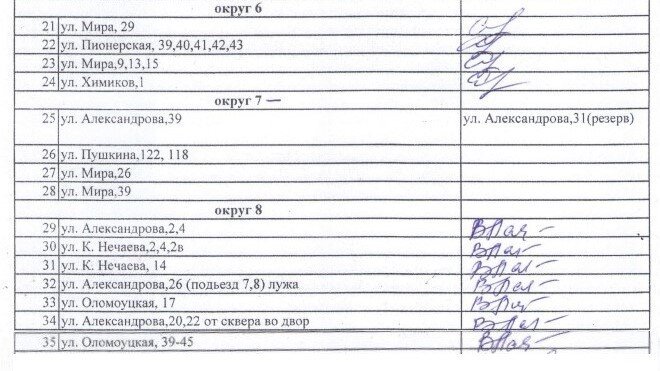 округ 6
21 ул. Мира, 29
22 ул. Пионерская, 39,40,41,42,43
23 ул. Мира,9,13,15
24 ул. Химиков,1
округ 7 —
25 ул. Александрова,39 ул. Александрова,31(резерв)
26 ул. Пушкина,122, 118
27 ул. Мира,26
28 ул. Мира,39
округ 8
29 ул. Александрова,2,4
30 ул. К. Нечаева,2,4,2в
31 ул. К. Нечаева, 14
32 ул. Александрова,26 (подьезд 7,8) лужа
33 ул. Оломоуцкая, 17
34 ул. Александрова,20,22 от сквера во двор
35 ул. Оломоуцкая, 39-45